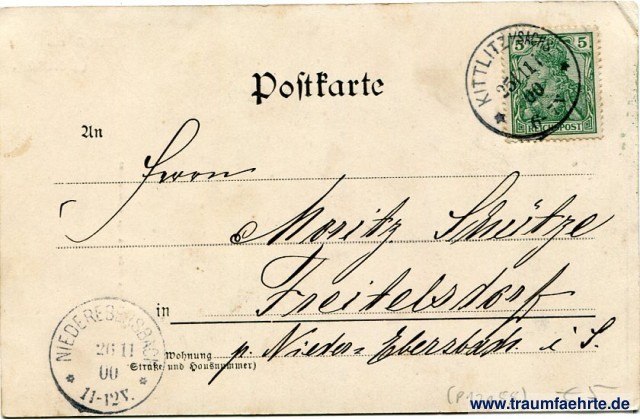 KITTLITZ (SACHS.
25/11
00
6-7
5 5
REICHSPOST
Postkarte
An
Herrn
Moritz Schütze
in Freitelsdorf
p. Nieder-Ebersbach i S.
Wohnung
(Straße und Hausnummer)
NIEDEREBERSBACH
26 11
00
11-12V.
www.traumfaehrte.de